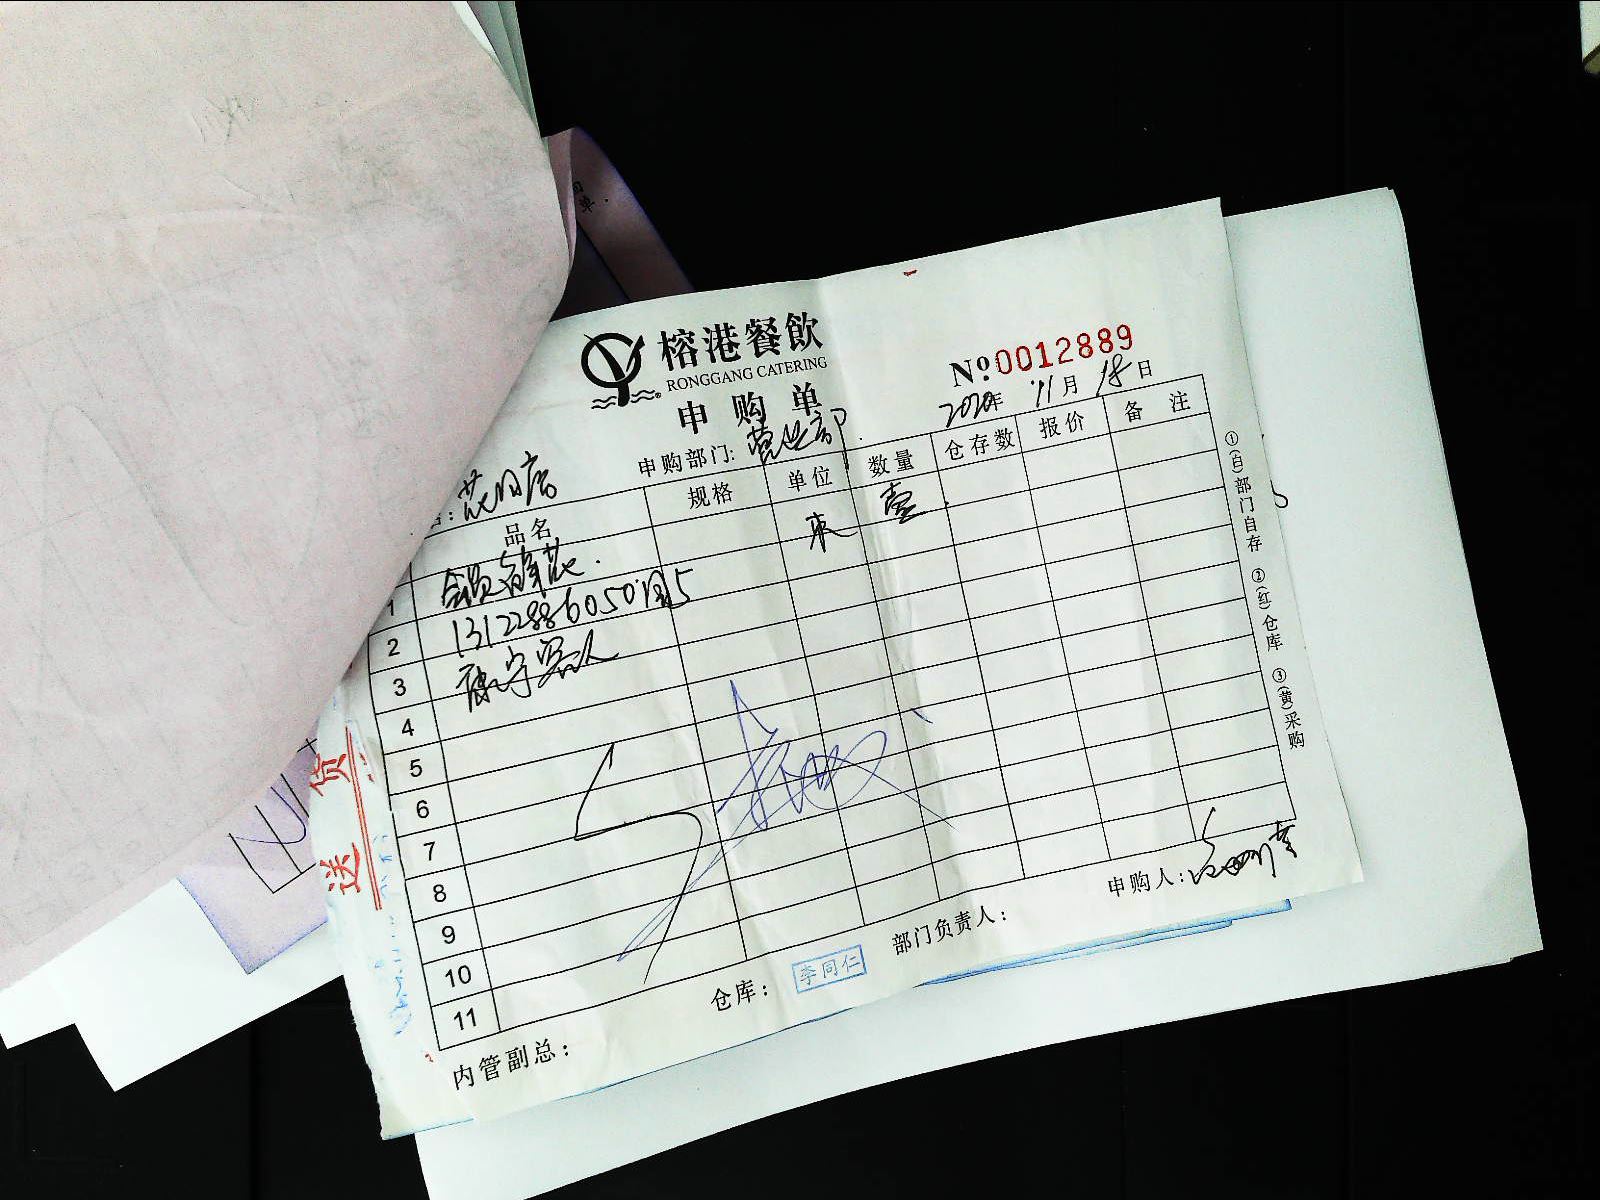 榕港餐飲
RONGGANG CATERING
申购单
№0012889
2020年 11月 18日
申购部门: 营业部
品名 规格 单位 数量 仓存数 报价 备注
1 会员鲜花. 束 壹.
2 13122886050
3
4
5
6
7
8
9
10
11
①(白)部门自存 ②(红)仓库 ③(黄)采购
申购人:
部门负责人:
仓库: 李同仁
内管副总:
送货
回单.